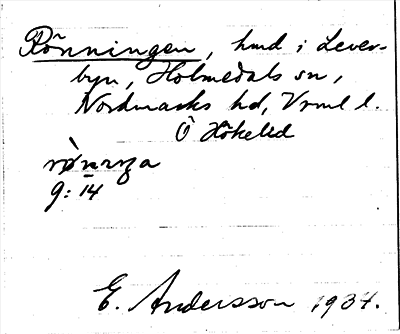 Rönningen, hmd i Lever-
byn, Holmedals sn,
Nordmarks hd, Vrml l.
Ö Hökeled
9: 14
E. Andersson 1934.